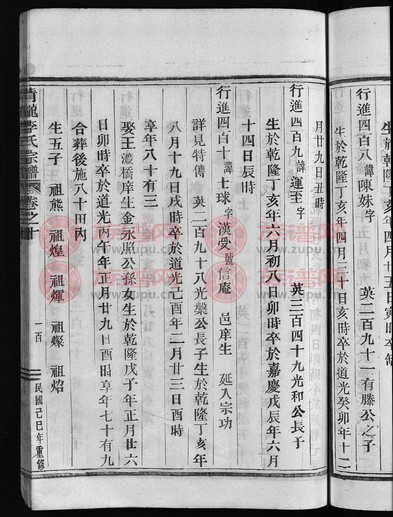 生於乾隆丁亥年四月十五日寅時卒
行進四百八諱陳妹字 英二百九十一有勝公之子
生於乾隆丁亥年四月二十日亥時卒於道光癸卯年十二
月廿九日丑時
行進四百九諱運至字 英二百四十九光和公長子
生於乾隆丁亥年六月初八日卯時卒於嘉慶戊辰年六月
十四日辰時
行進四百十諱士球字漢受號信庵 邑庠生 延入宗功
詳見特傳 英二百九十八光槼公長子生於乾隆丁亥年
八月十九日戌時卒於道光己酉年二月廿三日酉時
享年八十有三
娶王澱橋庠生金永照公孫女生於乾隆戊子年正月廿六
日卯時卒於道光丙午年正月廿九日酉時享年七十有九
合葬後施八十田內
生五子 祖熊 祖煌 祖煇 祖燦 祖炤
青龍李氏宗譜 卷之十 一百 民國己巳年重修
族譜網
www.zupu.cn